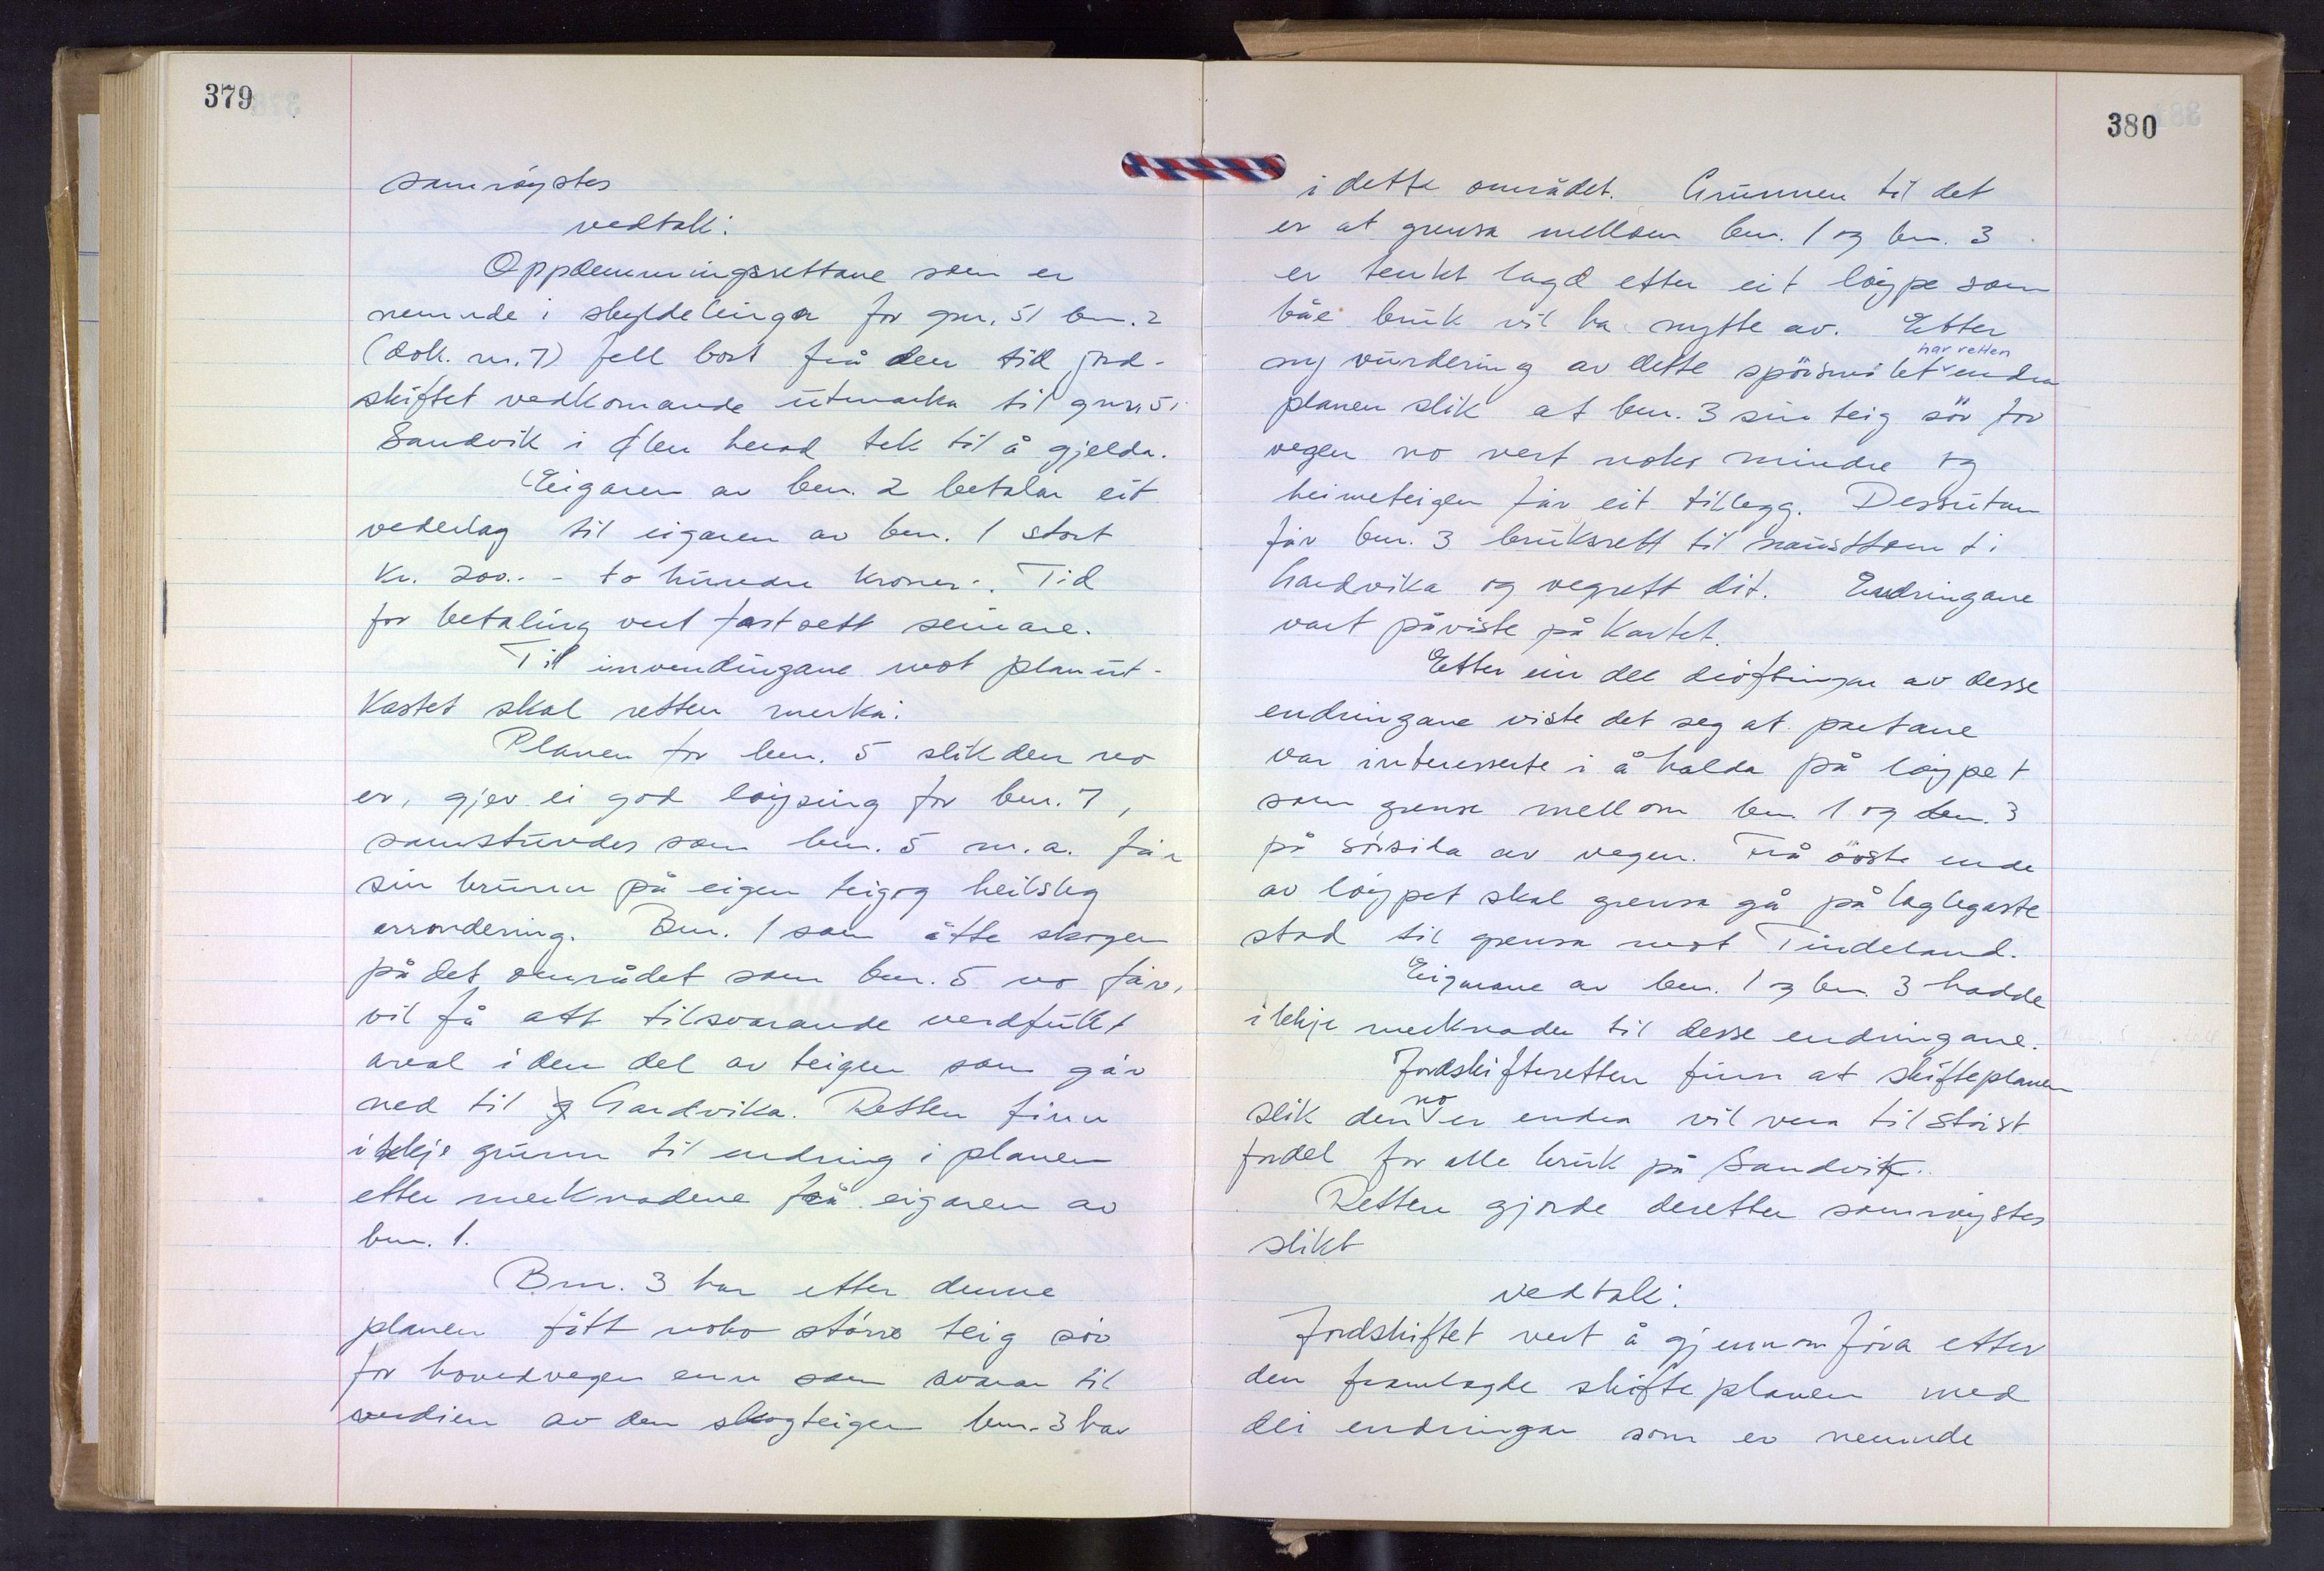 379
samrøystes
vedtak:
Oppdemmingsrettane som er
nemnde i skyldelinga for gnr. 51 bnr. 2
(dok. nr. 7) fell bort frå den tid jord-
skiftet vedkomande utmarka til gnr. 51
Sandvik i Ølen herad tek til å gjelda.
Eigaren av bnr. 2 betalar eit
vederlag til eigaren av bnr. 1 stort
kr. 200.- - to hundre kroner -. Tid
for betaling vert fastsett seinare.
Til innvendingane mot planut-
kastet skal retten merka:
Planen for bnr. 5 slik den no
er, gjev ei god løysing for bnr. 7,
samstundes som bnr. 5 m.a. får
sin brunn på eigen teig og heilsleg
arrondering. Bnr. 1 som åtte skogen
på det området som bnr. 5 no får,
vil få att tilsvarande verdfullt
areal i den del av teigen som går
ned til Gardvika. Retten finn
ikkje grunn til endring i planen
etter merknadene frå eigaren av
bnr. 1.
Bnr. 3 har etter denne
planen fått noko større teig sør
for hovedvegen enn som svarar til
verdien av den skogteigen bnr. 3 har
380
i dette området. Grunnen til det
er at grensa mellom bnr. 1 og bnr. 3
er tenkt lagd etter eit løype som
båe bruk vil ha nytte av. Etter
har retten
ny vurdering av dette spørsmålet endra
planen slik at bnr. 3 sin teig sør for
vegen no vert noko mindre og
heimeteigen får eit tillegg. Dessutan
får bnr. 3 bruksrett til nausttomt i
Gardvika og vegrett dit. Endringane
vart påviste på kartet.
Etter ein del drøftingar av desse
endringane viste det seg at partane
var interesserte i å halda på løypet
som grense mellom bnr. 1 og bnr. 3
på sørsida av vegen. Frå øvste ende
av løypet skal grensa gå på laglegaste
stad til grensa mot Tindeland.
Eigarane av bnr. 1 og bnr. 3 hadde
ikkje merknader til desse endringane.
Jordskifteretten finn at skifteplanen
no
slik den er endra vil vera til størst
fordel for alle bruk på Sandvik.
Retten gjorde deretter samrøystes
slikt
vedtak:
Jordskiftet vert å gjennomføra etter
den framlagde skifteplanen med
dei endringar som er nemnde